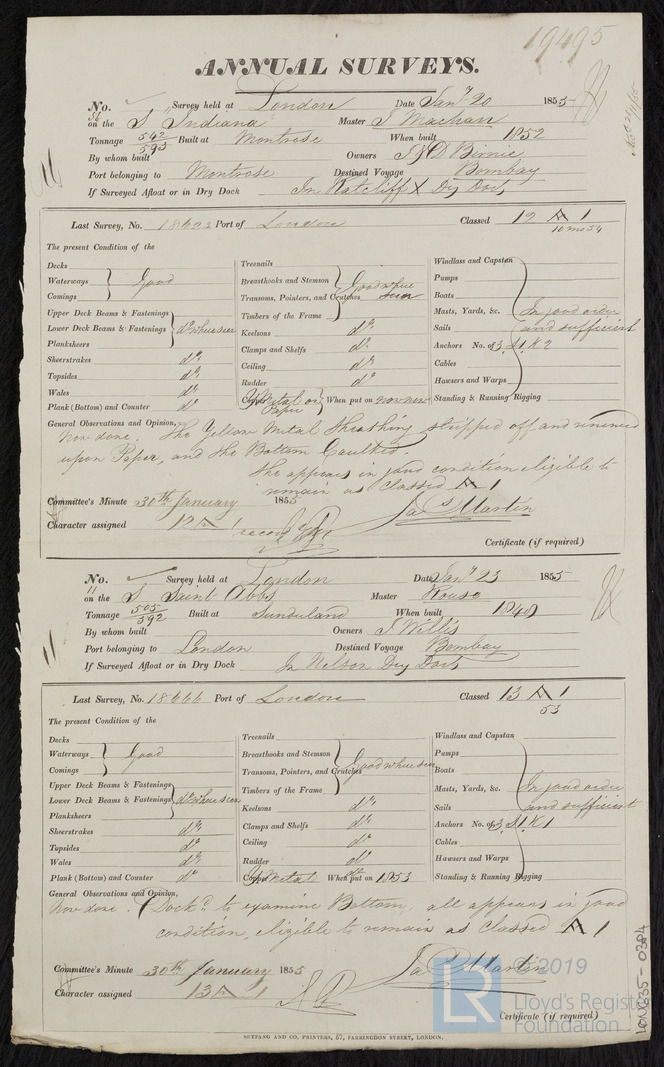 19495
ANNUAL SURVEYS.
No. Survey held at London Date Jany 20 1855
56 on the S Indiana Master J Machan
Tonnage 542/593 Built at Montrose When built 1852
By whom built Owners J & D Birnie
Port belonging to Montrose Destined Voyage Bombay
If Surveyed Afloat or in Dry Dock In Ratcliff X Dry Dock
Last Survey, No. 18623 Port of London Classed 12 A 1
10 mo 54
The present Condition of the
Decks
Waterways Good
Comings
Upper Deck Beams & Fastenings
Lower Deck Beams & Fastenings do where seen
Planksheers
Sheerstrakes do
Topsides do
Wales do
Plank (Bottom) and Counter do
Treenails
Breasthooks and Stemson Good where
Transoms, Pointers, and Crutches seen
Timbers of the Frame
Keelsons do
Clamps and Shelfs do
Ceiling do
Rudder do
Copper Y Metal on Paper When put on now new
Windlass and Capstan
Pumps
Boats
Masts, Yards, &c. In good order
Sails and sufficient
Anchors No. of 3, S1, K2
Cables
Hawsers and Warps
Standing & Running Rigging
General Observations and Opinion,
Now done. The Yellow Metal Sheathing stripped off and renewed
upon Paper, and the Bottom Caulked.
She appears in good condition eligible to
remain as Classed A 1
Committee's Minute 30th January 1855
Jas Martin
Character assigned 12 A 1
Certificate (if required)
No. Survey held at London Date Jany 23 1855
11 on the S Saint Abbs Master Rouse
Tonnage 505/592 Built at Sunderland When built 1840
By whom built Owners J Willis
Port belonging to London Destined Voyage Bombay
If Surveyed Afloat or in Dry Dock In Nelson Dry Dock
Last Survey, No. 18666 Port of London Classed 13 A 1
53
The present Condition of the
Decks
Waterways Good
Comings
Upper Deck Beams & Fastenings
Lower Deck Beams & Fastenings do where seen
Planksheers
Sheerstrakes do
Topsides do
Wales do
Plank (Bottom) and Counter do
Treenails
Breasthooks and Stemson
Transoms, Pointers, and Crutches Good where seen
Timbers of the Frame
Keelsons do
Clamps and Shelfs do
Ceiling do
Rudder do
Copper Y Metal When put on 1853
Windlass and Capstan
Pumps
Boats
Masts, Yards, &c. In good order
Sails and sufficient
Anchors No. of 3, S1, K1
Cables
Hawsers and Warps
Standing & Running Rigging
General Observations and Opinion,
Now done. Dockd to examine Bottom, all appears in good
condition, eligible to remain as Classed A 1
Jas Martin
Committee's Minute 30th January 1855
Character assigned 13 A 1
Certificate (if required)
SEYFANG AND CO. PRINTERS, 57, FARRINGDON STREET, LONDON.
LON635-0384
© 2019
LR
Lloyd's Register
Foundation